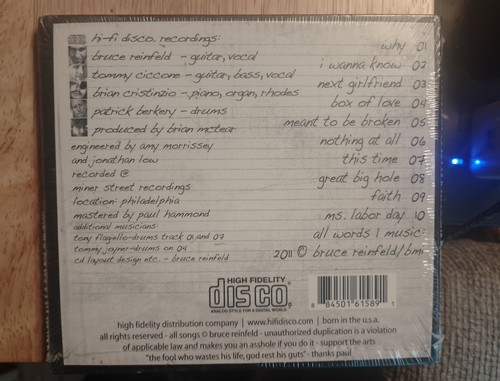 hi-fi disco. recordings:
bruce reinfeld - guitar, vocal
tommy ciccone - guitar, bass, vocal
brian cristinzio - piano, organ, rhodes
patrick berkery - drums
produced by brian mctear
engineered by amy morrissey
and jonathan low
recorded @
miner street recordings
location: philadelphia
mastered by paul hammond
additional musicians:
tony flagello-drums track 01 and 07
tommy joyner-drums on 04
cd layout design etc. - bruce reinfeld
why 01
i wanna know 02
next girlfriend 03
box of love 04
meant to be broken 05
nothing at all 06
this time 07
great big hole 08
faith 09
ms. labor day 10
all words | music:
2011 © bruce reinfeld/bmi
HIGH FIDELITY
disco.
ANALOG STYLE FOR A DIGITAL WORLD
8 84501 61589 1
high fidelity distribution company | www.hifidisco.com | born in the u.s.a.
all rights reserved - all songs © bruce reinfeld - unauthorized duplication is a violation
of applicable law and makes you an asshole if you do it - support the arts
"the fool who wastes his life, god rest his guts" - thanks paul